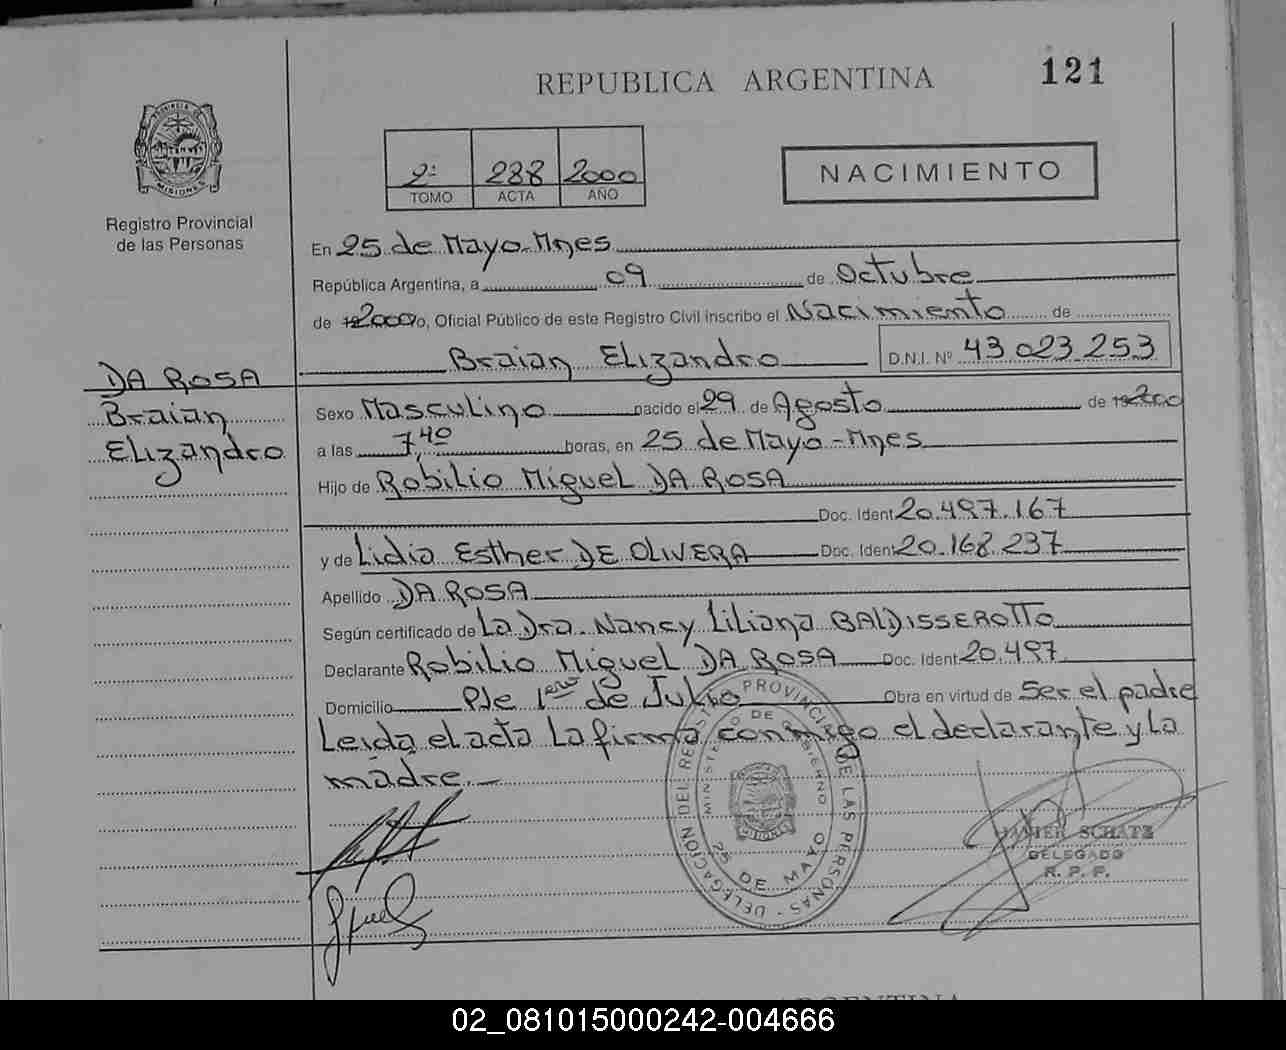 REPUBLICA ARGENTINA
121
PROVINCIA DE MISIONES
Registro Provincial
de las Personas
2º 288 2000
TOMO ACTA AÑO
NACIMIENTO
En 25 de Mayo-Mnes
República Argentina, a 09 de Octubre
de 2000 o, Oficial Público de este Registro Civil inscribo el Nacimiento de
Braian Elizandro D.N.I. Nº 43 023 253
DA ROSA
Braian
Elizandro
Sexo Masculino nacido el 29 de Agosto de 2000
a las 7,40 horas, en 25 de Mayo-Mnes
Hijo de Robilio Miguel DA ROSA
Doc. Ident 20.497.167
y de Lidia Esther DE OLIVERA Doc. Ident 20.168.237
Apellido DA ROSA
Según certificado de La Dra. Nancy Liliana BALDISSEROTTO
Declarante Robilio Miguel DA ROSA Doc. Ident 20.497.
Domicilio Pje 1ero de Julio Obra en virtud de Ser el padre
Leida el acta la firma conmigo el declarante y la
madre.-
REGISTRO PROVINCIAL DE LAS PERSONAS - DELEGACION DEL
MINISTERIO DE GOBIERNO
MISIONES
25 DE MAYO
JAVIER SCHATZ
DELEGADO
R. P. P.
ARGENTINA
02_081015000242-004666